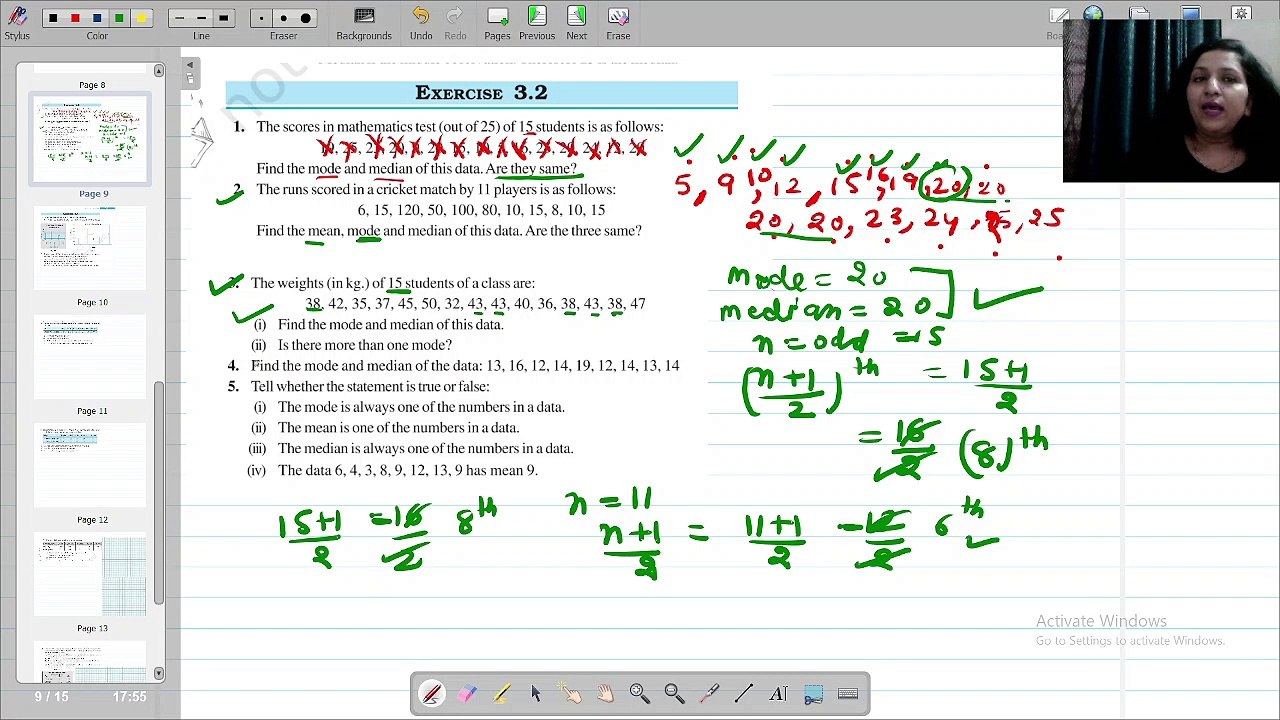 Stylus Colour Line Eraser Backgrounds Undo Redo Pages Previous Next Erase
Page 8
Page 9
Page 10
Page 12
Page 13
9 / 15 17:55
not
EXERCISE 3.2
1. The scores in mathematics test (out of 25) of 15 students is as follows:
Find the mode and median of this data. Are they same?
2. The runs scored in a cricket match by 11 players is as follows:
6, 15, 120, 50, 100, 80, 10, 15, 8, 10, 15
Find the mean, mode and median of this data. Are the three same?
3. The weights (in kg.) of 15 students of a class are:
38, 42, 35, 37, 45, 50, 32, 43, 43, 40, 36, 38, 43, 38, 47
(i) Find the mode and median of this data.
(ii) Is there more than one mode?
4. Find the mode and median of the data: 13, 16, 12, 14, 19, 12, 14, 13, 14
5. Tell whether the statement is true or false:
(i) The mode is always one of the numbers in a data.
(ii) The mean is one of the numbers in a data.
(iii) The median is always one of the numbers in a data.
(iv) The data 6, 4, 3, 8, 9, 12, 13, 9 has mean 9.
5, 9, 10, 12, 15, 16, 19, 20, 20
20, 20, 23, 24, 25, 25
mode = 20
median = 20
n = odd = 15
(n+1/2)th = 15+1/2
= 16/2 (8)th
15+1/2 = 16/2 8th
n = 11
n+1/2 = 11+1/2 = 12/2 6th
Activate Windows
Go to Settings to activate Windows.